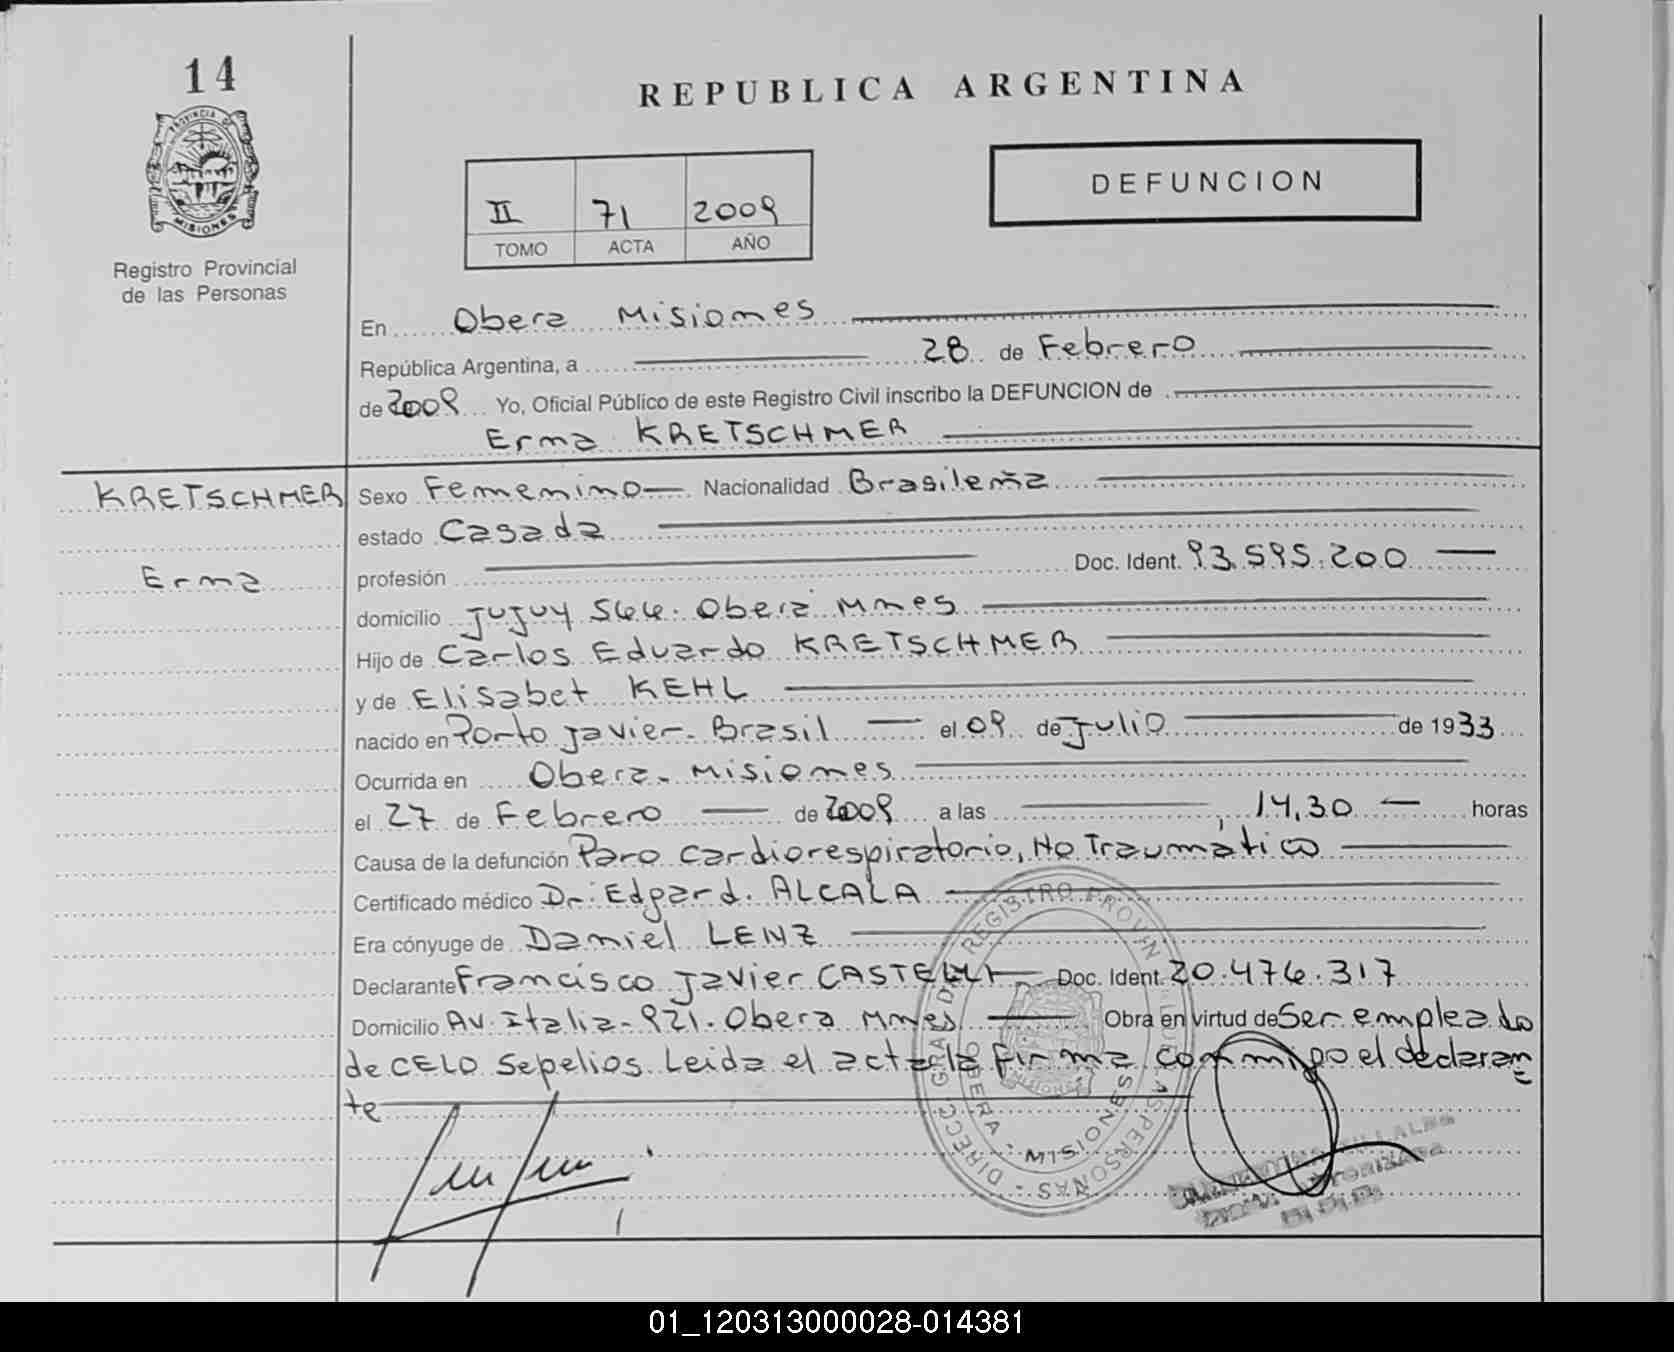 14
REPUBLICA ARGENTINA
PROVINCIA DE
MISIONES
Registro Provincial
de las Personas
DEFUNCION
II 71 2009
TOMO ACTA AÑO
En Obera Misiones
República Argentina, a 28 de Febrero
de 2009 Yo, Oficial Público de este Registro Civil inscribo la DEFUNCION de
Erma KRETSCHMER
KRETSCHMER
Erma
Sexo Femenino Nacionalidad Brasileña
estado Casada
profesión Doc. Ident. 93.595.200
domicilio Jujuy 544. Obera Mnes
Hijo de Carlos Eduardo KRETSCHMER
y de Elisabet KEHL
nacido en Porto Javier. Brasil el 09 de Julio de 1933
Ocurrida en Obera. Misiones
el 27 de Febrero de 2009 a las 14,30 horas
Causa de la defunción Paro cardiorespiratorio, No Traumático
Certificado médico Dr. Edgard. ALCALA
Era cónyuge de Daniel LENZ
Declarante Francisco Javier CASTELLI Doc. Ident. 20.476.317
Domicilio Av. Italia-921. Obera Mnes Obra en virtud de Ser empleado
de CELO Sepelios. Leida el acta la firma conmigo el declaran
te
OBERA - MISIONES
01_120313000028-014381